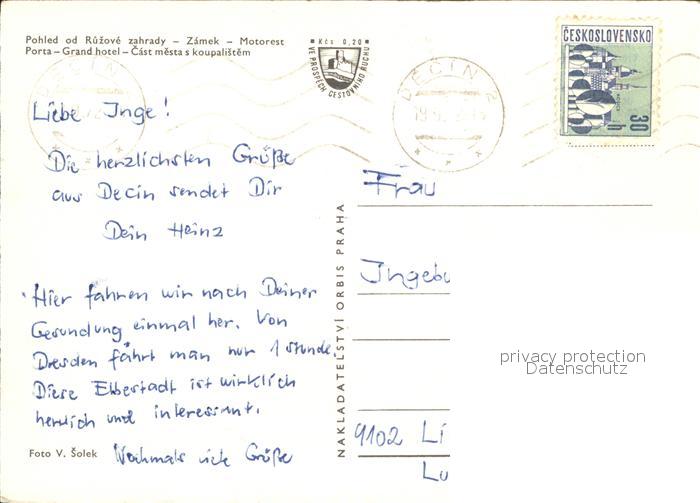 Pohled od Růžové zahrady – Zámek – Motorest
Porta – Grand hotel – Část města s koupalištěm
Kčs 0,20
VE PROSPĚCH CESTOVNÍHO RUCHU
DĚČÍN 2
ČESKOSLOVENSKO
30 h
Liebe Inge!
Die herzlichsten Grüße
aus Decin sendet Dir
Dein Heinz
Hier fahren wir nach Deiner
Gesundung einmal her. Von
Dresden fährt man nur 1 Stunde.
Diese Elbestadt ist wirklich
herrlich und interessant.
Nochmals viele Grüße
Foto V. Šolek
NAKLADATELSTVÍ ORBIS PRAHA
Frau
Ingebu
9102 Li
Lu
privacy protection
Datenschutz